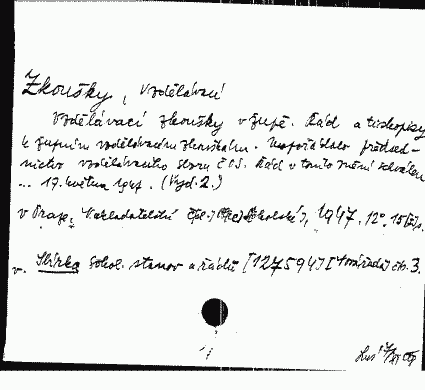 Zkoušky, vzdělávací
Vzdělávací zkoušky v župě. Řád a tiskopisy
k župním vzdělávacím zkouškám. Uspořádalo předsed-
nictvo vzdělávacího sboru ČOS. Řád v tomto znění schválen
... 17. května 1947. (Vyd. 2.)
v Praze, Nakladatelství Čsl. Obec Sokolské, 1947. 12°. 15 s.
v. Sbírka sokol. stanov a řádů [127594] [ čís. 3.